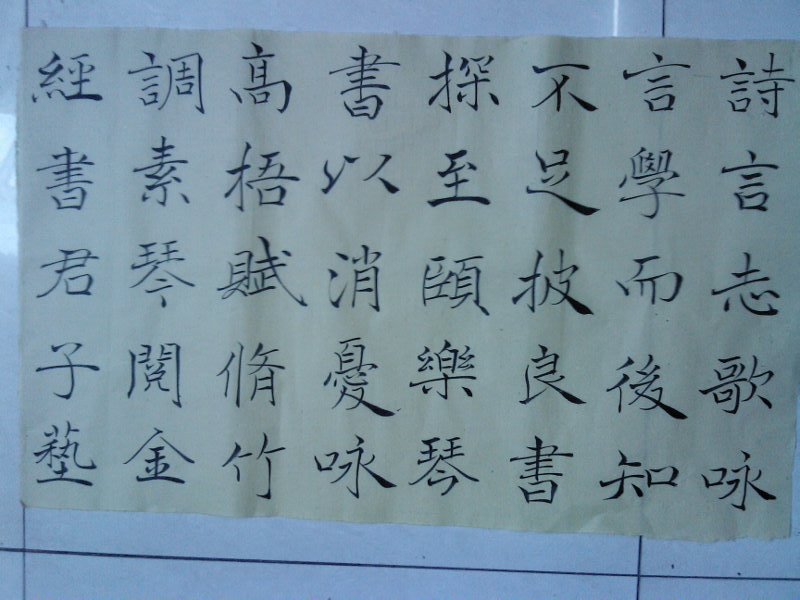 詩言志歌咏
言學而後知
不足披良書
探至頤樂琴
書以消憂咏
高梧賦脩竹
調素琴閱金
經書君子藝